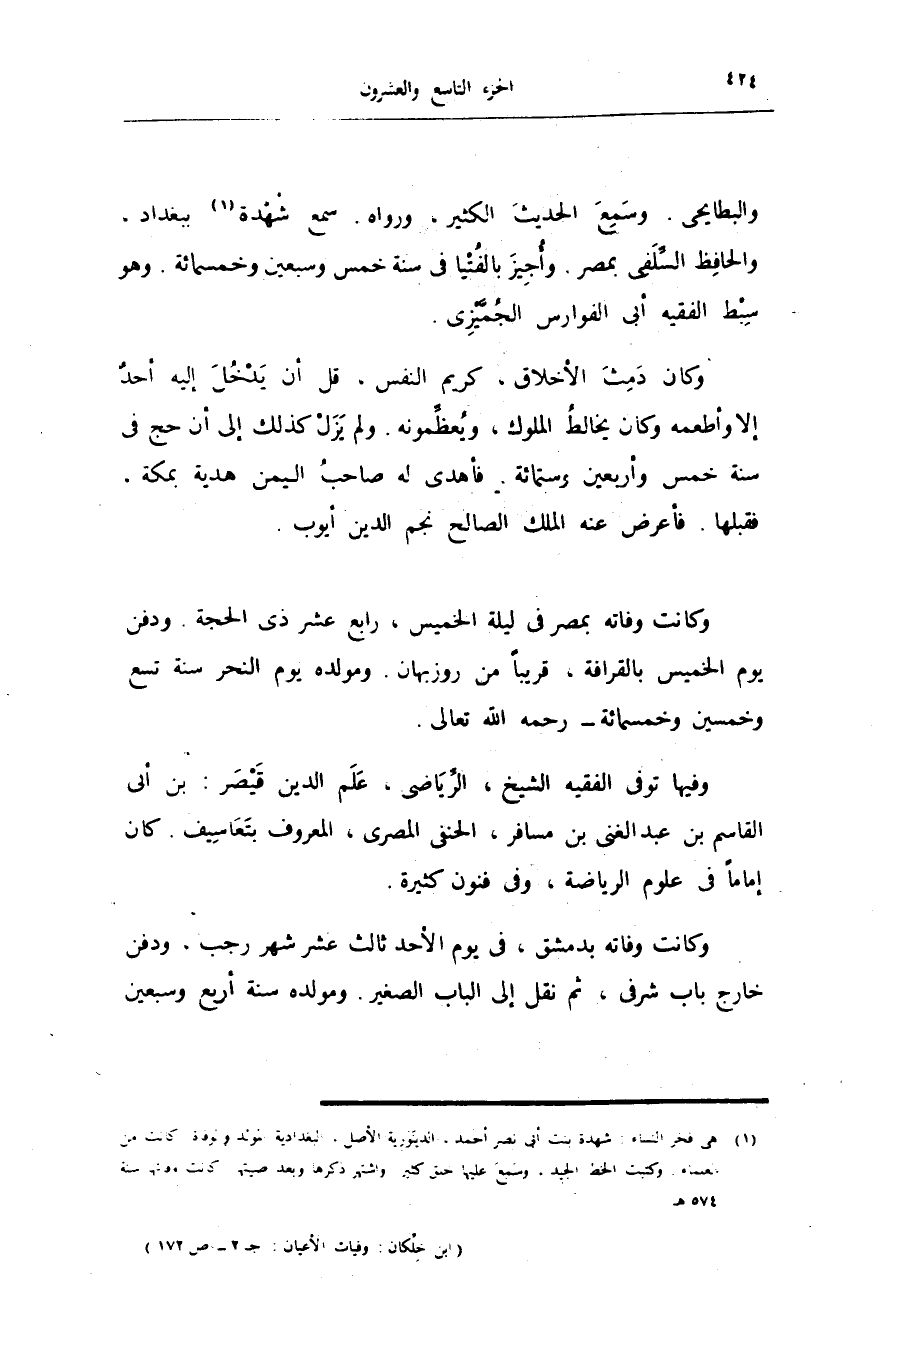 ٤٢٤
الجزء التاسع والعشرون
والبطايحى . وسَمِعَ الحديثَ الكثير ، ورواه . سمع شُهْدة (١) ببغداد .
والحافِظ السِّلَفى بمصر . وأُجِيزَ بالفُتْيا فى سنة خمس وسبعين وخمسمائة . وهو
سِبْط الفقيه أبى الفوارس الجُمَّيْزِى .
وكان دَمِثَ الأخلاق ، كريم النفس . قل أن يَدْخُلَ إليه أحدٌ
إلا وأطعمه وكان يخالطُ الملوك ، ويُعظِّمونه . ولم يَزَلْ كذلك إلى أن حج فى
سنة خمس وأربعين وستمائة . فأهدى له صاحبُ اليمن هدية بمكة .
فقبلها . فأعرض عنه الملك الصالح نجم الدين أيوب .
وكانت وفاته بمصر فى ليلة الخميس ، رابع عشر ذى الحجة . ودفن
يوم الخميس بالقرافة ، قريباً من روزبهان . ومولده يوم النحر سنة تسع
وخمسين وخمسمائة ــ رحمه الله تعالى .
وفيها توفى الفقيه الشيخ ، الرِّيَاضى ، عَلَم الدين قَيْصَر : بن أبى
القاسم بن عبد الغنى بن مسافر ، الحنفى المصرى ، المعروف بتَعَاسِيف . كان
إماماً فى علوم الرياضة ، وفى فنون كثيرة .
وكانت وفاته بدمشق ، فى يوم الأحد ثالث عشر شهر رجب . ودفن
خارج باب شرقى ، ثم نقل إلى الباب الصغير . ومولده سنة أربع وسبعين
(١) هى فخر النساء : شهدة بنت أبى نصر أحمد ، الدينَورية الأصل ، البغدادية المولد والوفاة كانت من
العلماء . وكتبت الخط الجيد . وسَمعَ عليها خلق كثير واشتهر ذكرها وبعد صيتها كانت وفاتها سنة
٥٧٤ هـ
( ابن خِلْكان : وفيات الأعيان : جـ ٢ ــ ص ١٧٢ )